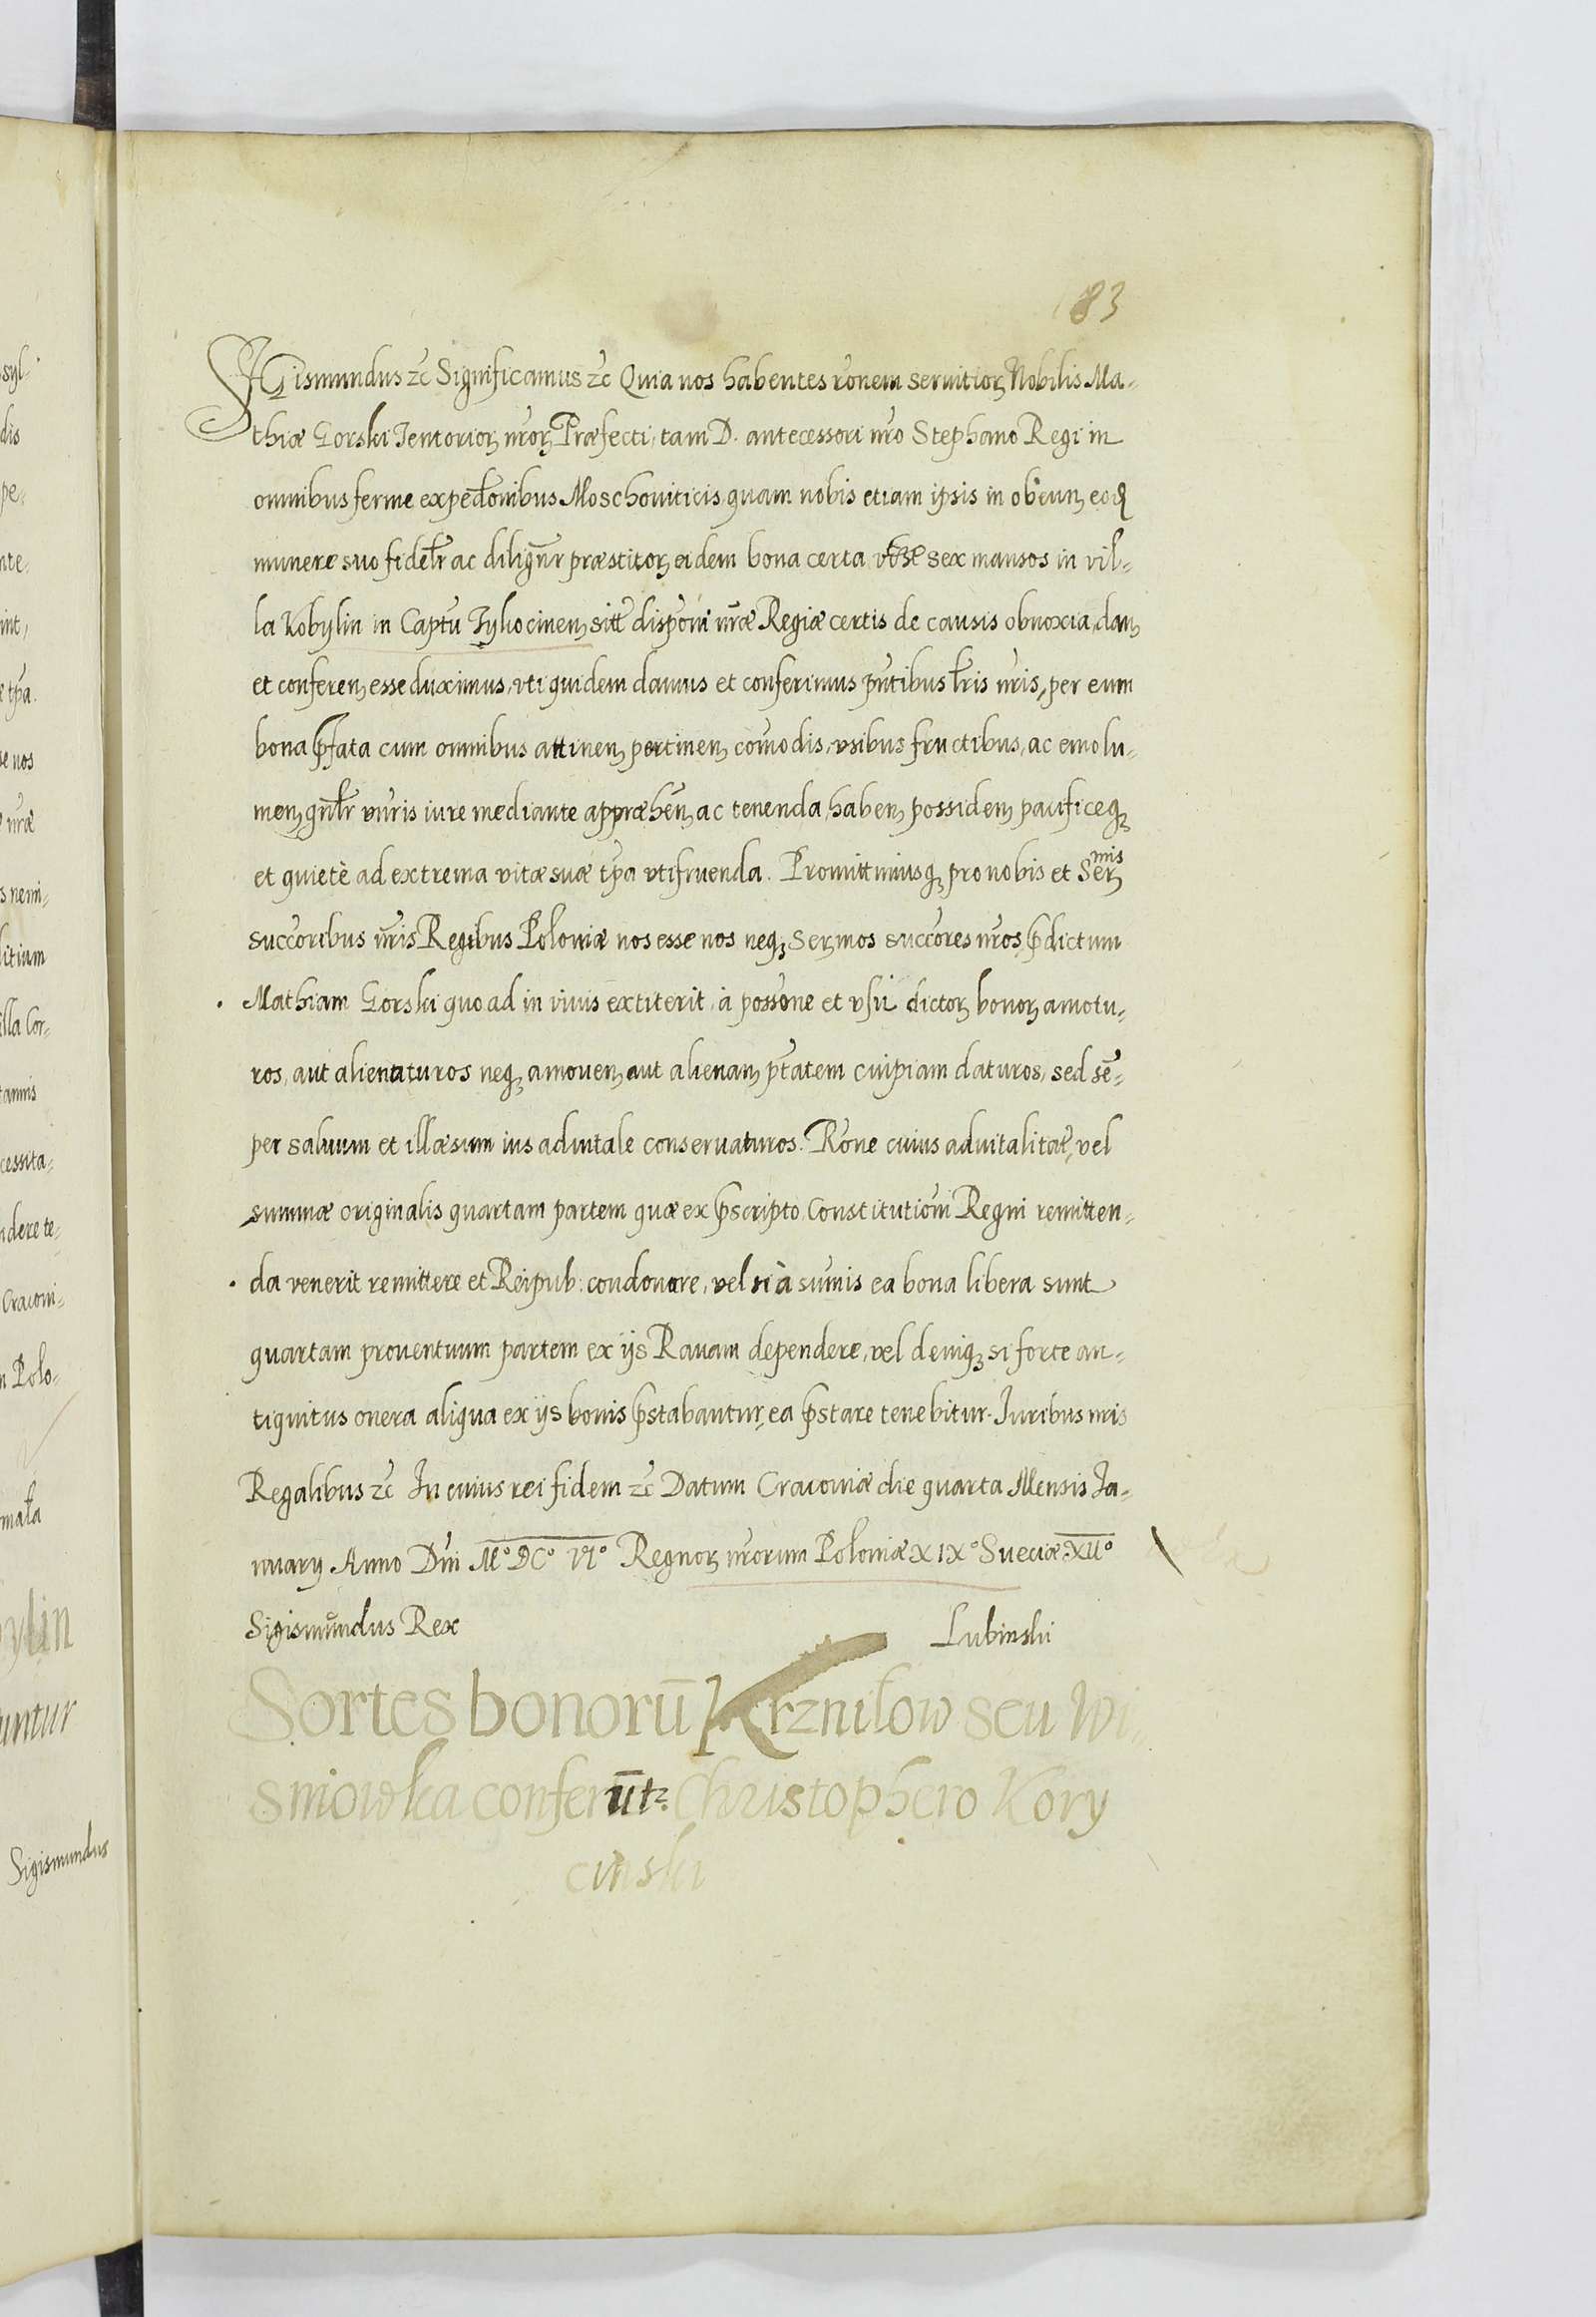 83
SIGismundus zc̄ Significamus zc̄ Quia nos habentes rōnem seruitioꝝ Nobilis Ma-
thiæ Gorski Tentorioꝝ nr̄oꝝ Præfecti, tam D. antecessori nr̄o Stephano Regi in
omnibus ferme expedōnibus Moschouiticis quam nobis etiam ipsis in obeunꝫ eod
munere suo fidelr̄ ac dilign̄r præstitoꝝ eidem bona certa sex mansos in vil-
la Kobylin in Captū Tykocinenꝫ sitt̄ dispōni nr̄æ Regiæ certis de causis obnoxia, danꝫ
et conferenꝫ esse duximus, vti quidem damus et conferimus pn̄tibus lr̄is nr̄is, per eum
bona p̄fata cum omnibus attinenꝫ pertinenꝫ com̄odis, vsibus fructibus, ac emolu-
menꝫ gn̄lr̄ vn̄ris iure mediante appræhēnꝫ ac tenenda, habenꝫ possidenꝫ pacificeqꝫ
et quietè ad extrema vitæ suæ tp̄a vtifruenda. Promittimusqꝫ pro nobis et Serꝫ mis
succōribus nr̄is Regibus Poloniæ nos esse nos neqꝫ Serꝫmos succōres nr̄os p̄dictum
Mathiam Gorski quoad in viuis extiterit, à possōne et vsu dictoꝝ bonoꝝ amotu-
ros, aut alienaturos neqꝫ amouenꝫ aut alienanꝫ pt̄atem cuipiam daturos, sed sē-
per saluum et illæsum ius aduitale conseruaturos. Rōne cuius aduitalitat̄, vel
summæ originalis quartam partem quæ ex p̄scripto Constitutiōni Regni remitten-
da venerit remittere et Reipub: condonare, vel si à sum̄is ea bona libera sunt
quartam prouentuum partem ex ijs Rauam dependere, vel deniqꝫ si forte an-
tiquitus onera aliqua ex ijs bonis p̄stabantur, ea p̄stare tenebitur. Iuribus nr̄is
Regalibus zc̄ In cuius rei fidem zc̄ Datum Cracouiæ die quarta Mensis Ja-
nuarij Anno Dn̄i M° DC° VI° Regnoꝝ nr̄orum Poloniæ XIX° Sueciæ XII°
Sigismūndus Rex Lubinski
Sortes bonorū Krznilow seu Wi-
sniowka conferūtꝛ Christophero Kory
cinski